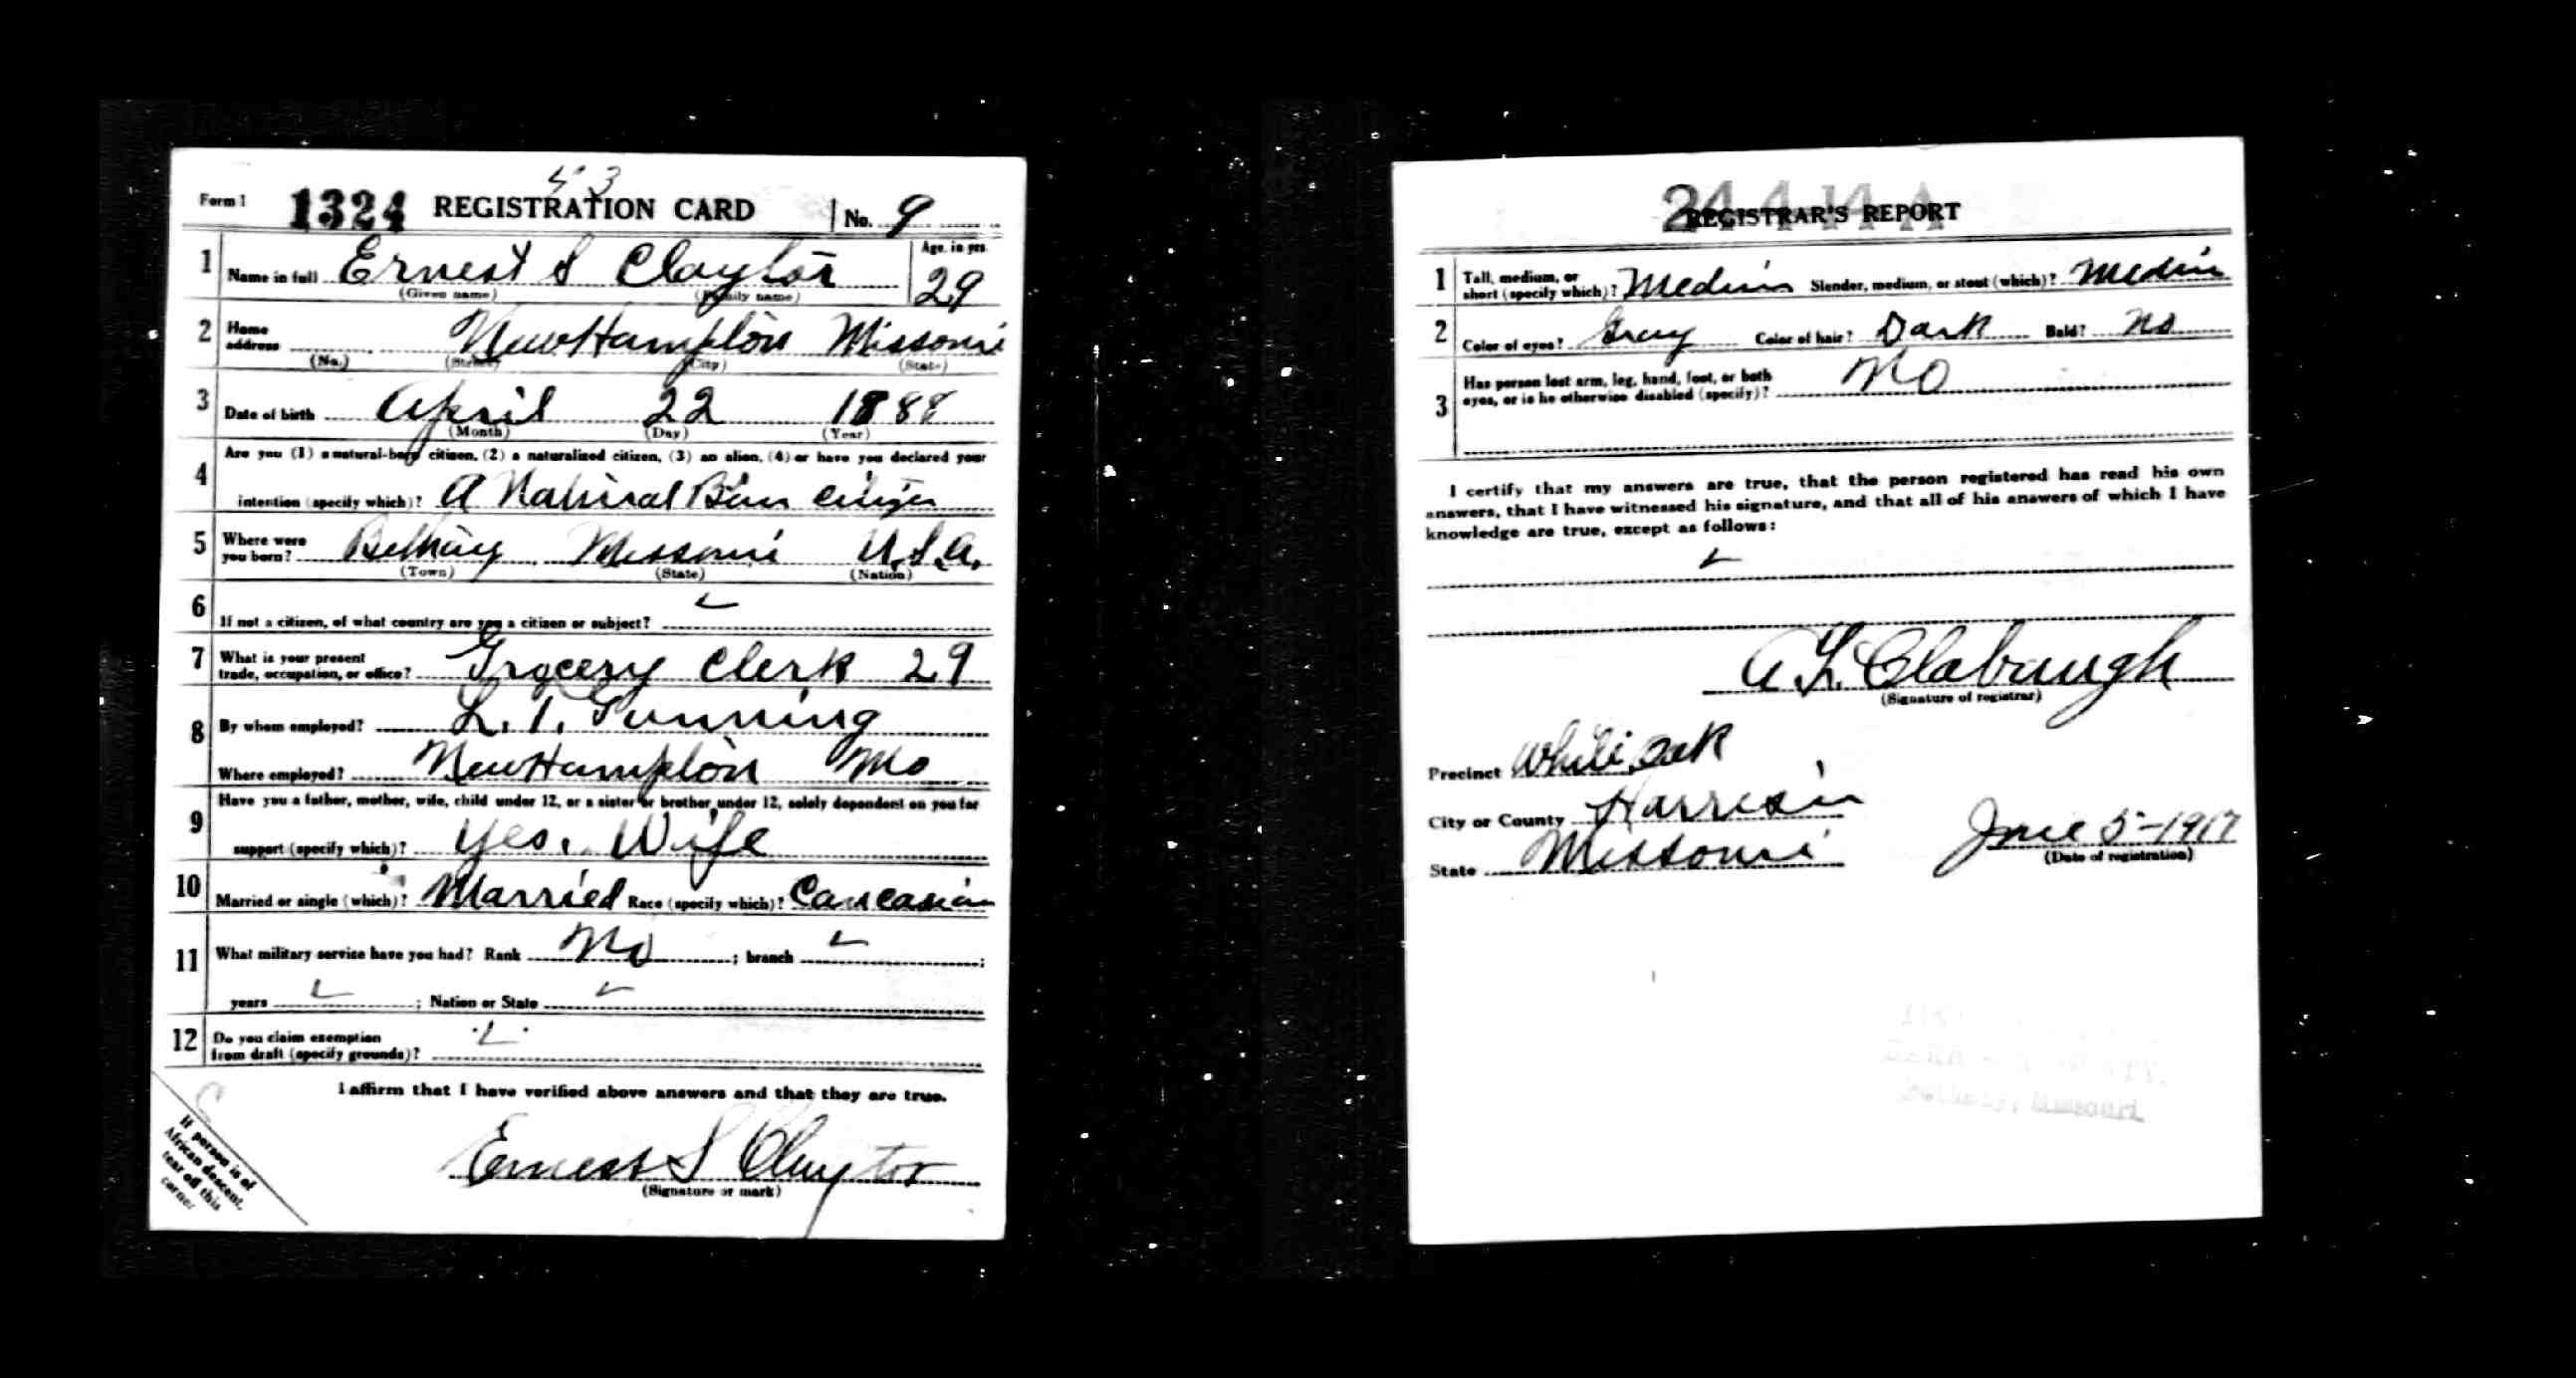 43
Form 1 1324 REGISTRATION CARD No. 9
1 Name in full Ernest S Claytor Age, in yrs. 29
(Given name) (Family name)
2 Home address New Hampton Missouri
(No.) (Street) (City) (State)
3 Date of birth April 22 1888
(Month) (Day) (Year)
4 Are you (1) a natural-born citizen, (2) a naturalized citizen, (3) an alien, (4) or have you declared your
intention (specify which)? A Natural Born citizen
5 Where were you born? Bethany Missouri U.S.A.
(Town) (State) (Nation)
6 If not a citizen, of what country are you a citizen or subject?
7 What is your present trade, occupation, or office? Grocery Clerk 29
8 By whom employed? L. I. Gunning
Where employed? New Hampton Mo
9 Have you a father, mother, wife, child under 12, or a sister or brother under 12, solely dependent on you for
support (specify which)? Yes. Wife
10 Married or single (which)? Married Race (specify which)? Caucasian
11 What military service have you had? Rank No ; branch ;
years ; Nation or State
12 Do you claim exemption from draft (specify grounds)?
I affirm that I have verified above answers and that they are true.
Ernest S Claytor
(Signature or mark)
If person is of
African descent,
tear off this
corner
REGISTRAR'S REPORT
1 Tall, medium, or short (specify which)? Medium Slender, medium, or stout (which)? Medium
2 Color of eyes? Gray Color of hair? Dark Bald? No
3 Has person lost arm, leg, hand, foot, or both eyes, or is he otherwise disabled (specify)? No
I certify that my answers are true, that the person registered has read his own
answers, that I have witnessed his signature, and that all of his answers of which I have
knowledge are true, except as follows:
A L Clabaugh
(Signature of registrar)
Precinct White Oak
City or County Harrison
State Missouri June 5-1917
(Date of registration)
Missouri